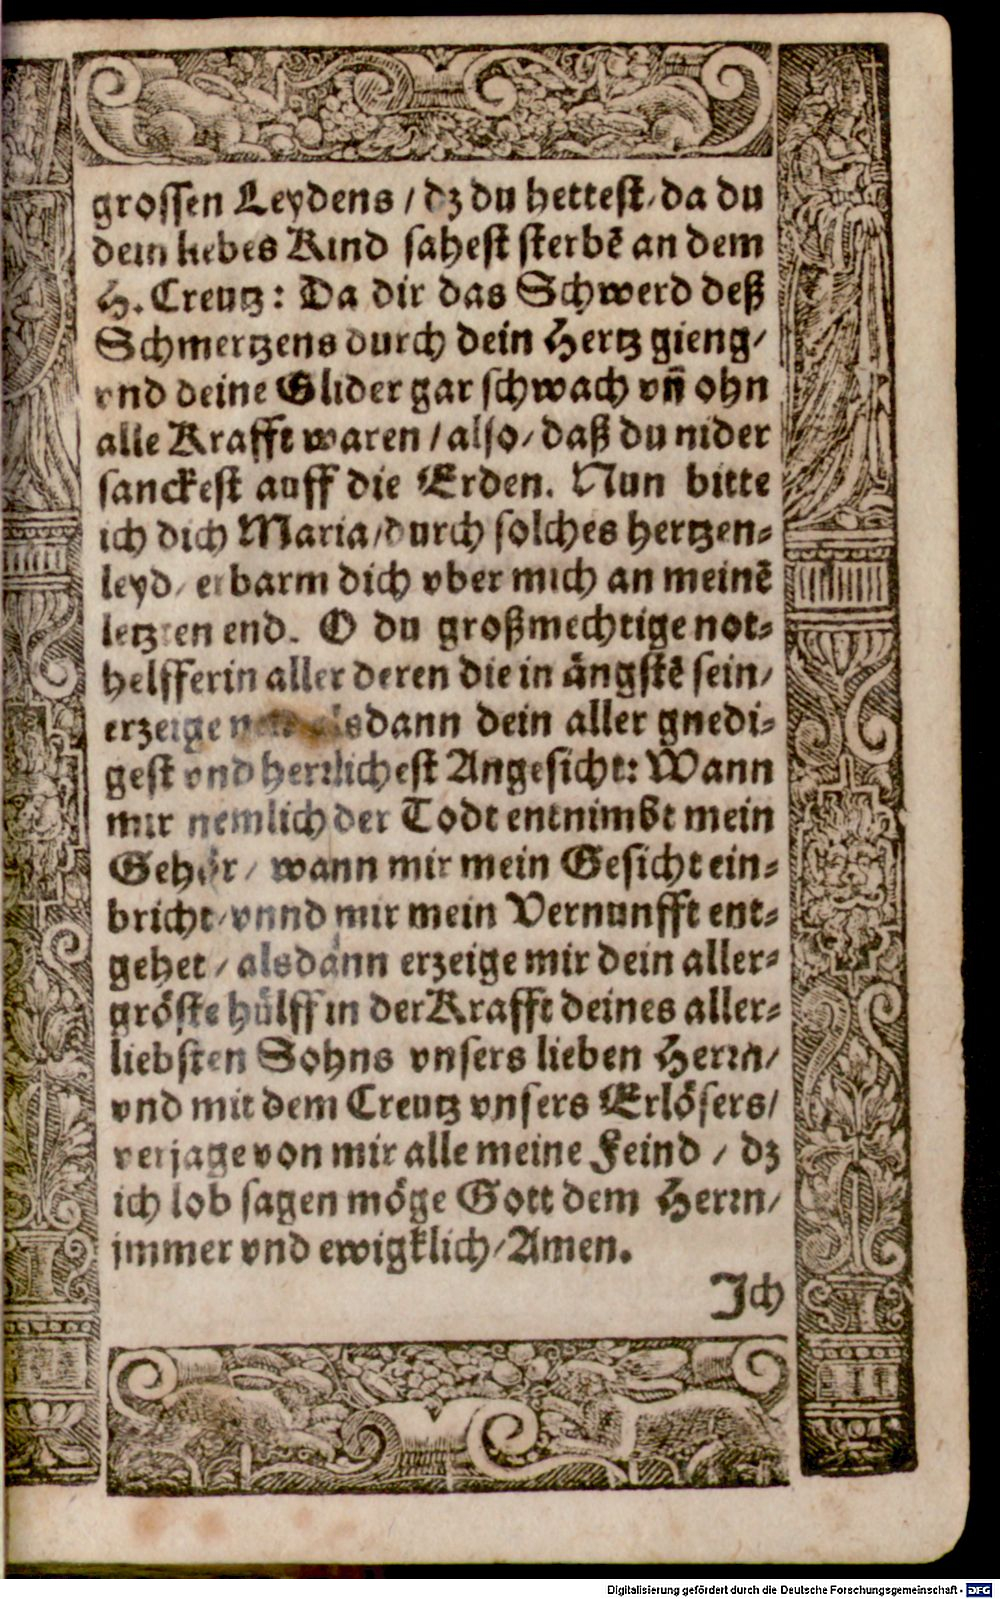 grossen Leydens / dz du hettest / da du
dein liebes Kind sahest sterbẽ an dem
H. Creutz: Da dir das Schwerd deß
Schmertzens durch dein Hertz gieng /
vnd deine Glider gar schwach vñ ohn
alle Krafft waren / also / daß du nider
sanckest auff die Erden. Nun bitte
ich dich Maria / durch solches hertzen-
leyd / erbarm dich vber mich an meinẽ
letzten end. O du großmechtige not-
helfferin aller deren die in ängstẽ sein /
erzeige alsdann dein aller gnedi-
gest vnd herrlichest Angesicht: Wann
mir nemlich der Todt entnimbt mein
Gehör / wann mir mein Gesicht ein-
bricht / vnnd mir mein Vernunfft ent-
gehet / alsdann erzeige mir dein aller-
gröste hülff in der Krafft deines aller-
liebsten Sohns vnsers lieben Herrn /
vnd mit dem Creutz vnsers Erlösers /
verjage von mir alle meine Feind / dz
ich lob sagen möge Gott dem Herrn /
jmmer vnd ewigklich / Amen.
Jch
Digitalisierung gefördert durch die Deutsche Forschungsgemeinschaft - DFG